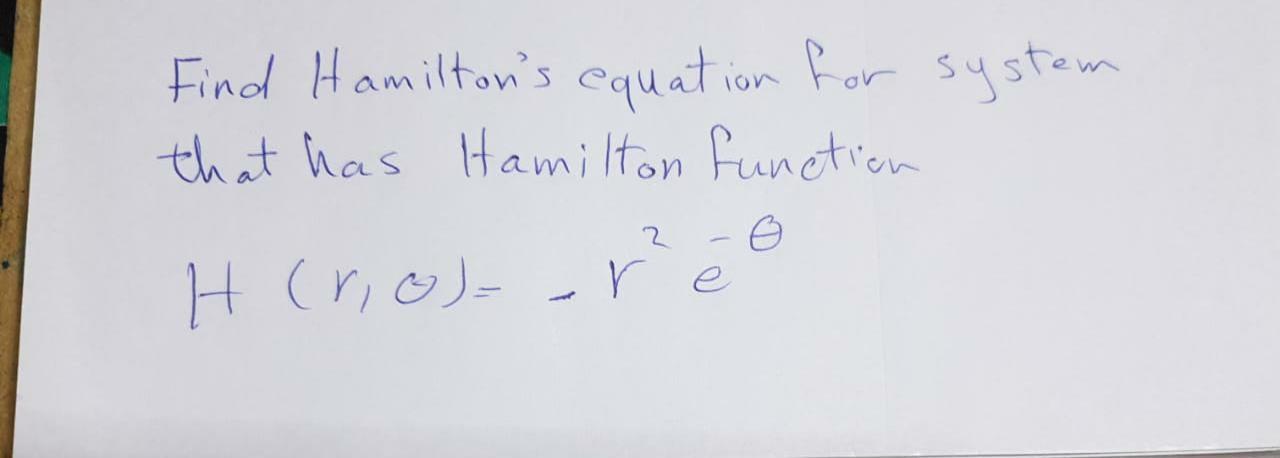 Find Hamilton's equation for system
that has Hamilton function
H (r, θ) = - r² e^-θ